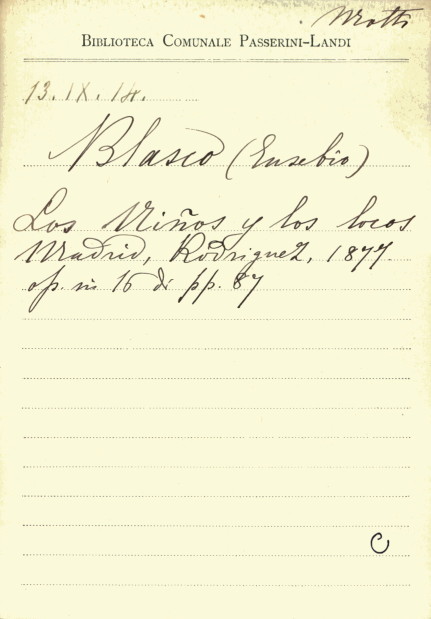 Motti
BIBLIOTECA COMUNALE PASSERINI-LANDI
13.IX.14.
Blasco (Eusebio)
Los Niños y los locos
Madrid, Rodriguez, 1877
op. in 16 di pp. 87
C